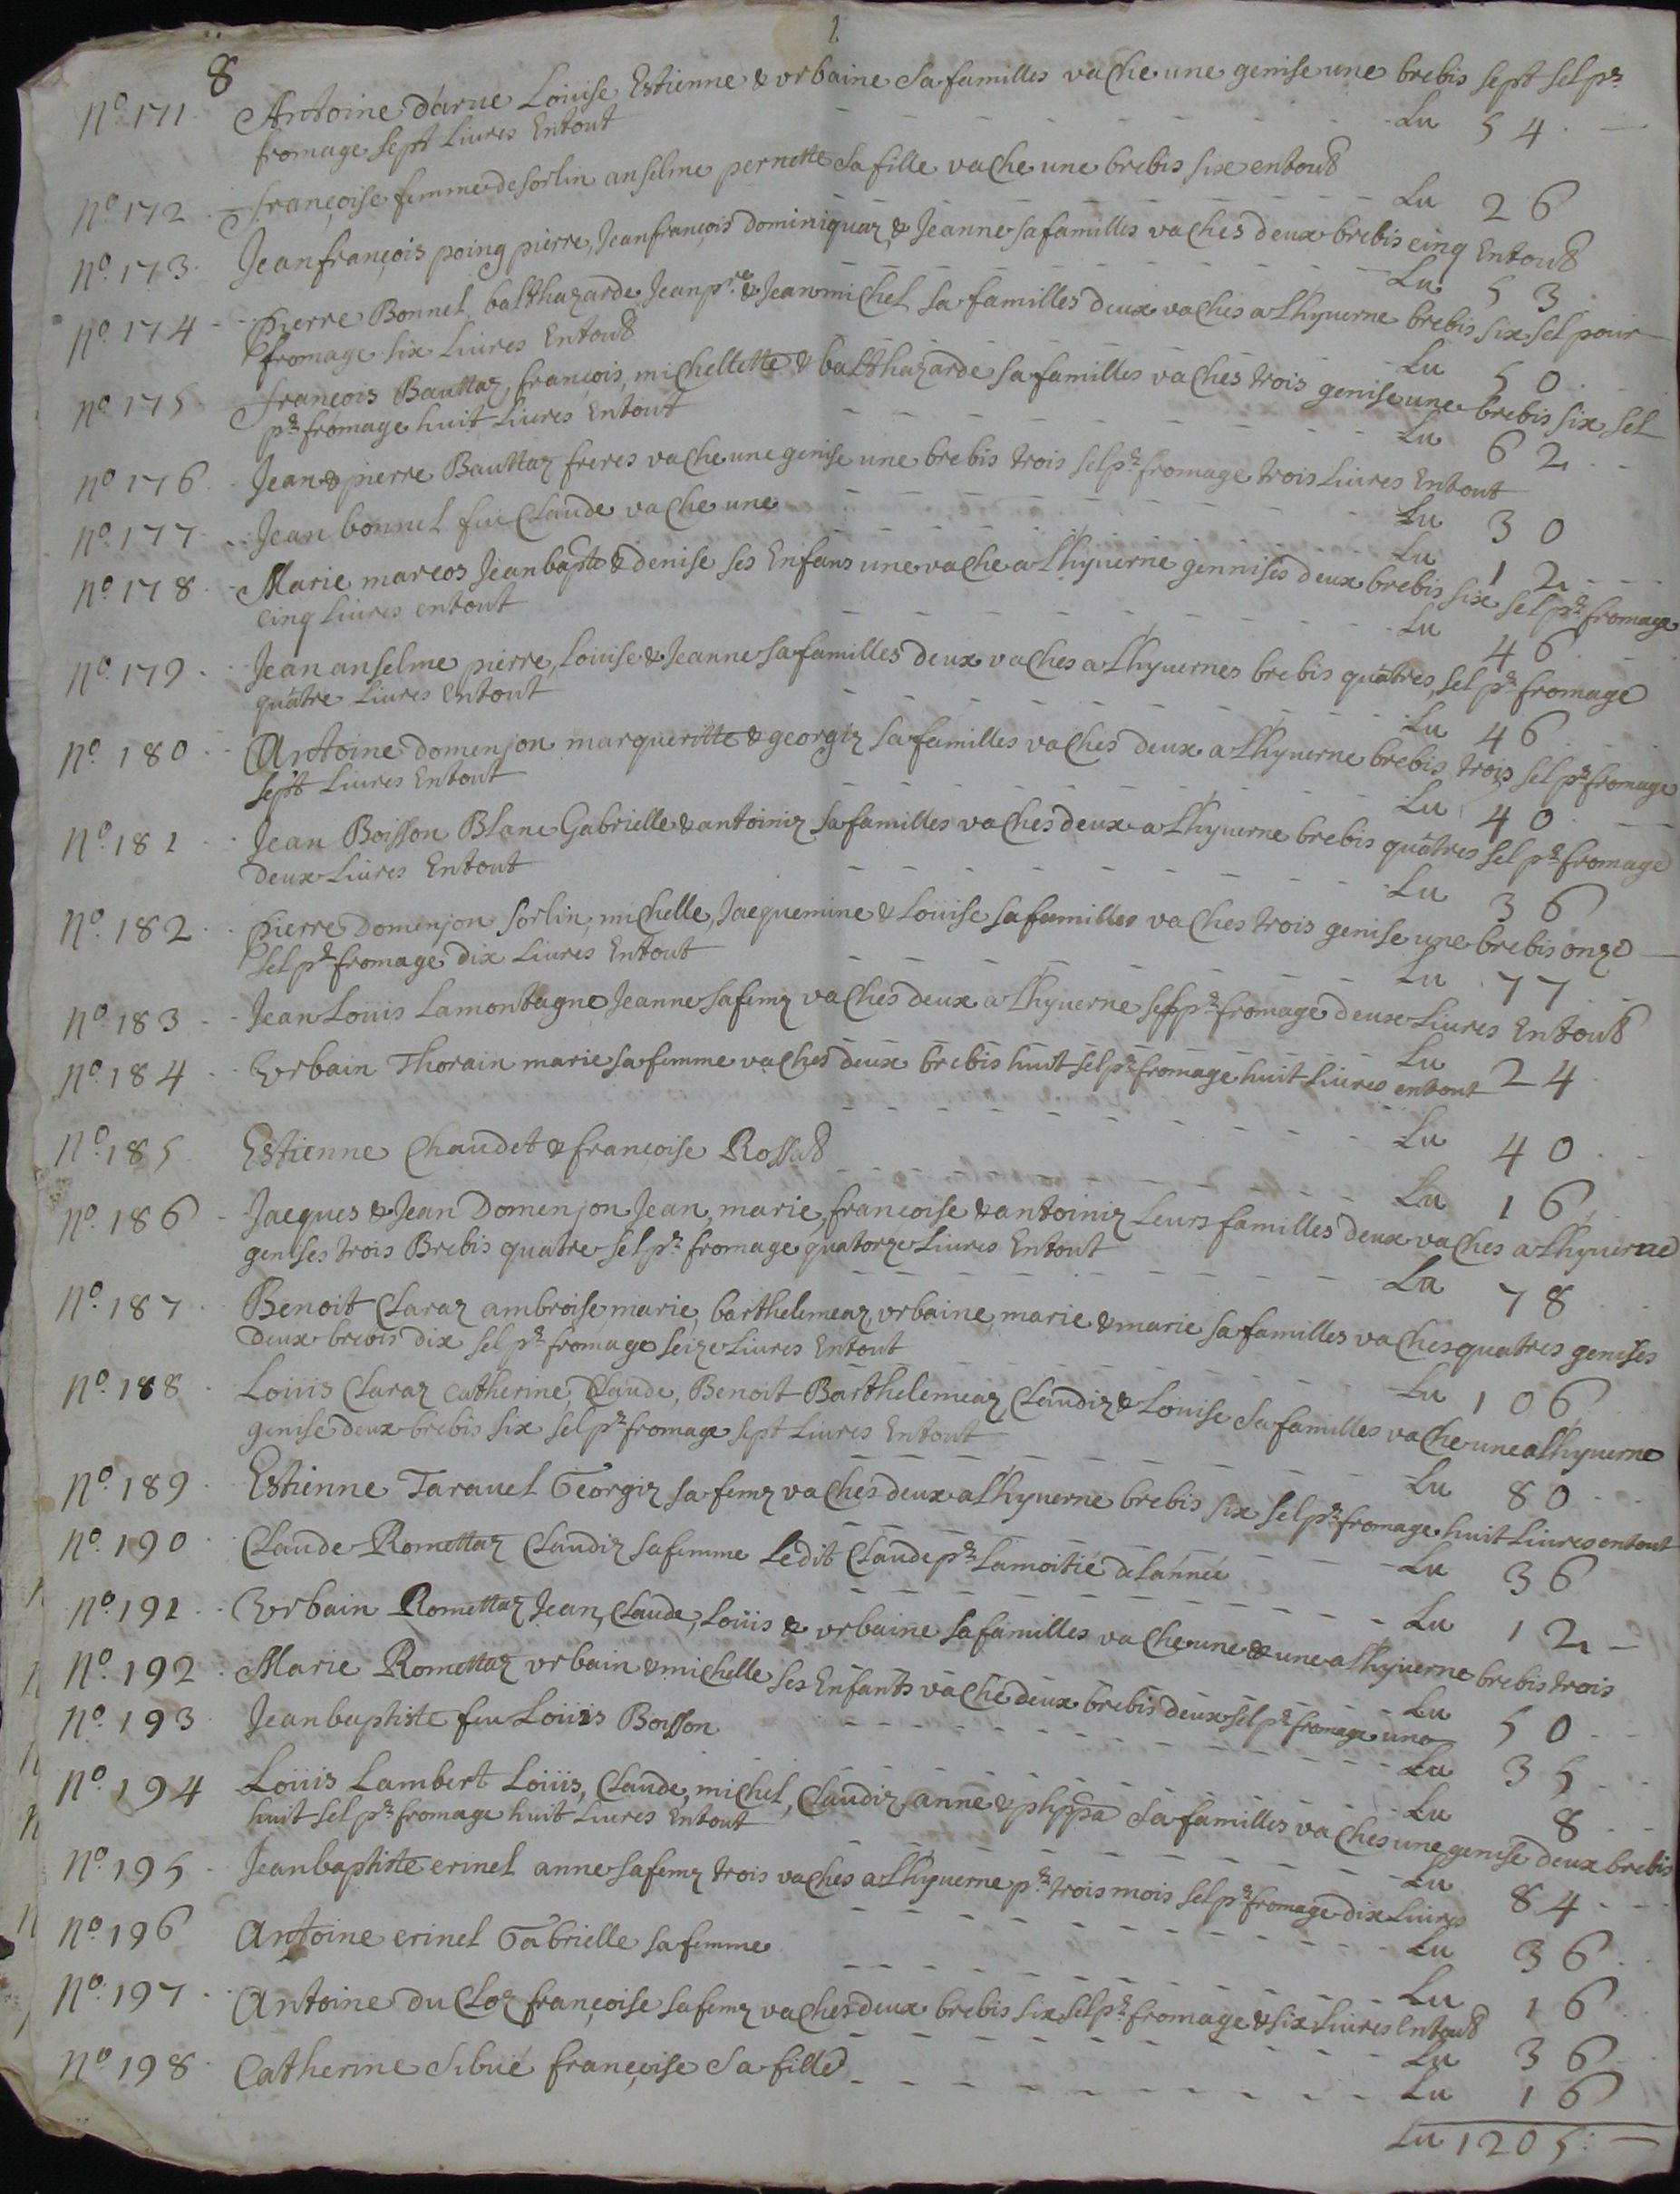 8
N.º 171 Antoine darve Louise Estienne & vrbaine sa familles vache une genise une brebis sept sel p.r
fromage sept Liures Entout Lu 54
N.º 172 françoise femme de sorlin anselme pernette sa fille vache une brebis six entout
Lu 26
N.º 173 Jeanfrançois poing pierre, Jeanfrançois dominiquaz & Jeanne sa familles vaches deux brebis cinq Entout
Lu 53
N.º 174 pierre Bonnel balthazarde Jean p.re & Jean michel sa familles deux vaches a Lhyuerne brebis six sel pour
fromage six Liures Entout Lu 50
N.º 175 françois Bauttaz, françois, michellette & balthazarde sa familles vaches trois genise une brebis six sel
p.r fromage huit Liures Entout Lu 62
N.º 176 Jean & pierre Bauttaz freres vache une genise une brebis trois sel p.r fromage trois Liures Entout
Lu 30
N.º 177 Jean bonnel feu Claude vache une Lu 12
N.º 178 Marie marcos Jean bapte & denise ses Enfans une vache a Lhyuerne gennises deux brebis six sel p.r fromage
cinq Liures entout Lu 46
N.º 179 Jean anselme pierre, Louise & Jeanne sa familles deux vaches a Lhyuernes brebis quatres, sel p.r fromage
quatre Liures Entout Lu 46
N.º 180 Antoine domenjon marqueritte & georgiz sa familles vaches deux a Lhyuerne brebis trois sel p.r fromage
sept Liures Entout Lu 40
N.º 181 Jean Boisson Blanc Gabrielle & antoiniz sa familles vaches deux a Lhyuerne brebis quatres sel p.r fromage
deux Liures Entout Lu 36
N.º 182 pierre domenjon sorlin, michelle, Jacquemine & Louise sa familles vaches trois genise une brebis onze
sel p.r fromage dix Liures Entout Lu 77
N.º 183 Jean Louis Lamontagne Jeanne sa femz vaches deux a Lhyuerne sel p.r fromage deux Liures Entout
Lu 24
N.º 184 Vrbain Thorain marie sa femme vaches deux brebis huit sel p.r fromage huit Liures entout
Lu 40
N.º 185 Estienne Chaudet & françoise Rossat Lu 16
N.º 186 Jacques & Jean Domenjon Jean, marie, françoise & antoiniz Leurs familles deux vaches a Lhyuerne
genises trois Brebis quatre sel p.r fromage quatorze Liures Entout La 78
N.º 187 Benoit Claraz ambroise, marie, barthelemeaz, vrbaine, marie & marie sa familles vaches quatres genises
deux brebis dix sel p.r fromage seize Liures Entout Lu 106
N.º 188 Louis Claraz Catherine, Claude, Benoit Barthelemeaz, Claudiz & Louise sa familles vache une a Lhyuerne
genise deux brebis six sel p.r fromage sept Liures Entout Lu 80
N.º 189 Estienne Tarauel Georgiz sa femz vaches deux a Lhyuerne brebis six sel p.r fromage huit Liures entout
Lu 36
N.º 190 Claude Romettaz Claudiz sa femme Ledit Claude p.r Lamoitié de Lánnée Lu 12
N.º 191 Vrbain Romettaz Jean, Claude, Loüis & vrbaine sa familles vache une & une a Lhyuerne brebis trois
Lu 50
N.º 192 Marie Romettaz vrbain & michelle ses Enfants vache deux brebis deux sel p.r fromage une
Lu 35
N.º 193 Jeanbaptiste feu Louis Boisson Lu 8
N.º 194 Loüis Lambert Loüis, Claude, michel, Claudiz, anne & phppa sa familles vaches une genise deux brebis
huit sel p.r fromage huit Liures Entout Lu 84
N.º 195 Jeanbaptiste crinel anne sa femz trois vaches a Lhyuerne p.r trois mois sel p.r fromage dix Liures
Lu 36
N.º 196 Antoine crinel Gabrielle sa femme Lu 16
N.º 197 Antoine du Cloz françoise sa femz vaches deux brebis six sel p.r fromage & six Liures Entout
Lu 36
N.º 198 Catherine Sibué françoise sa fille Lu 16
Lu 1205